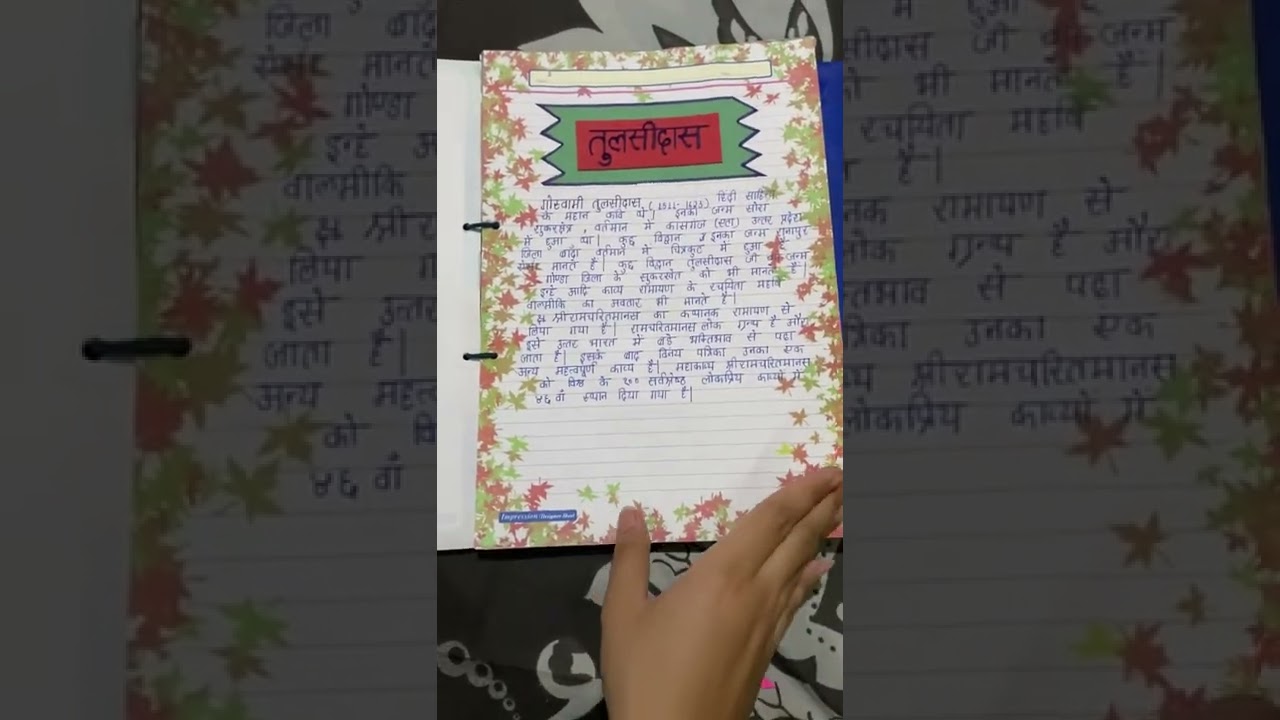 तुलसीदास
गोस्वामी तुलसीदास (1511-1623) हिंदी साहित्य
के महान कवि थे। इनका जन्म सोरों
शुकरक्षेत्र, वर्तमान में कासगंज (एटा) उत्तर प्रदेश
में हुआ था। कुछ विद्वान इनका जन्म राजापुर
जिला बाँदा वर्तमान में चित्रकूट में हुआ
मानते हैं। कुछ विद्वान तुलसीदास जी का जन्म
गोण्डा जिला के सुकरखेत को भी मानते हैं।
इन्हें आदि काव्य रामायण के रचयिता महर्षि
वाल्मीकि का अवतार भी मानते है।
श्रीरामचरितमानस का कथानक रामायण से
लिया गया है। रामचरितमानस लोक ग्रन्थ है और
इसे उत्तर भारत में बड़े भक्तिभाव से पढ़ा
जाता है। इसके बाद विनय पत्रिका उनका एक
अन्य महत्वपूर्ण काव्य है। महाकाव्य श्रीरामचरितमानस
को विश्व के १०० सर्वश्रेष्ठ लोकप्रिय काव्यों में
४६ वाँ स्थान दिया गया है।
Impression